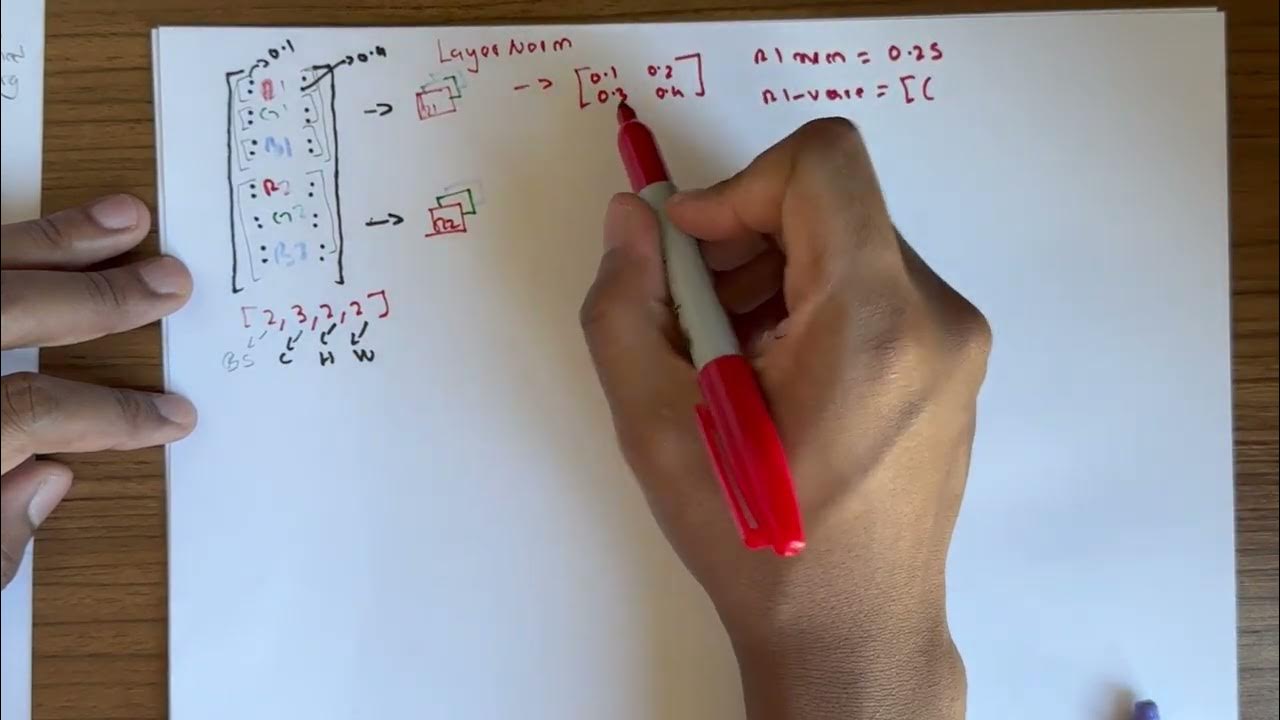 0.1
0.4
Layer Norm
R1
G1
B1
R2
G2
B2
R1
R2
[0.1 0.2
0.3 0.4]
R1 mean = 0.25
R1-vare = [(
[2,3,2,2]
BS C H W